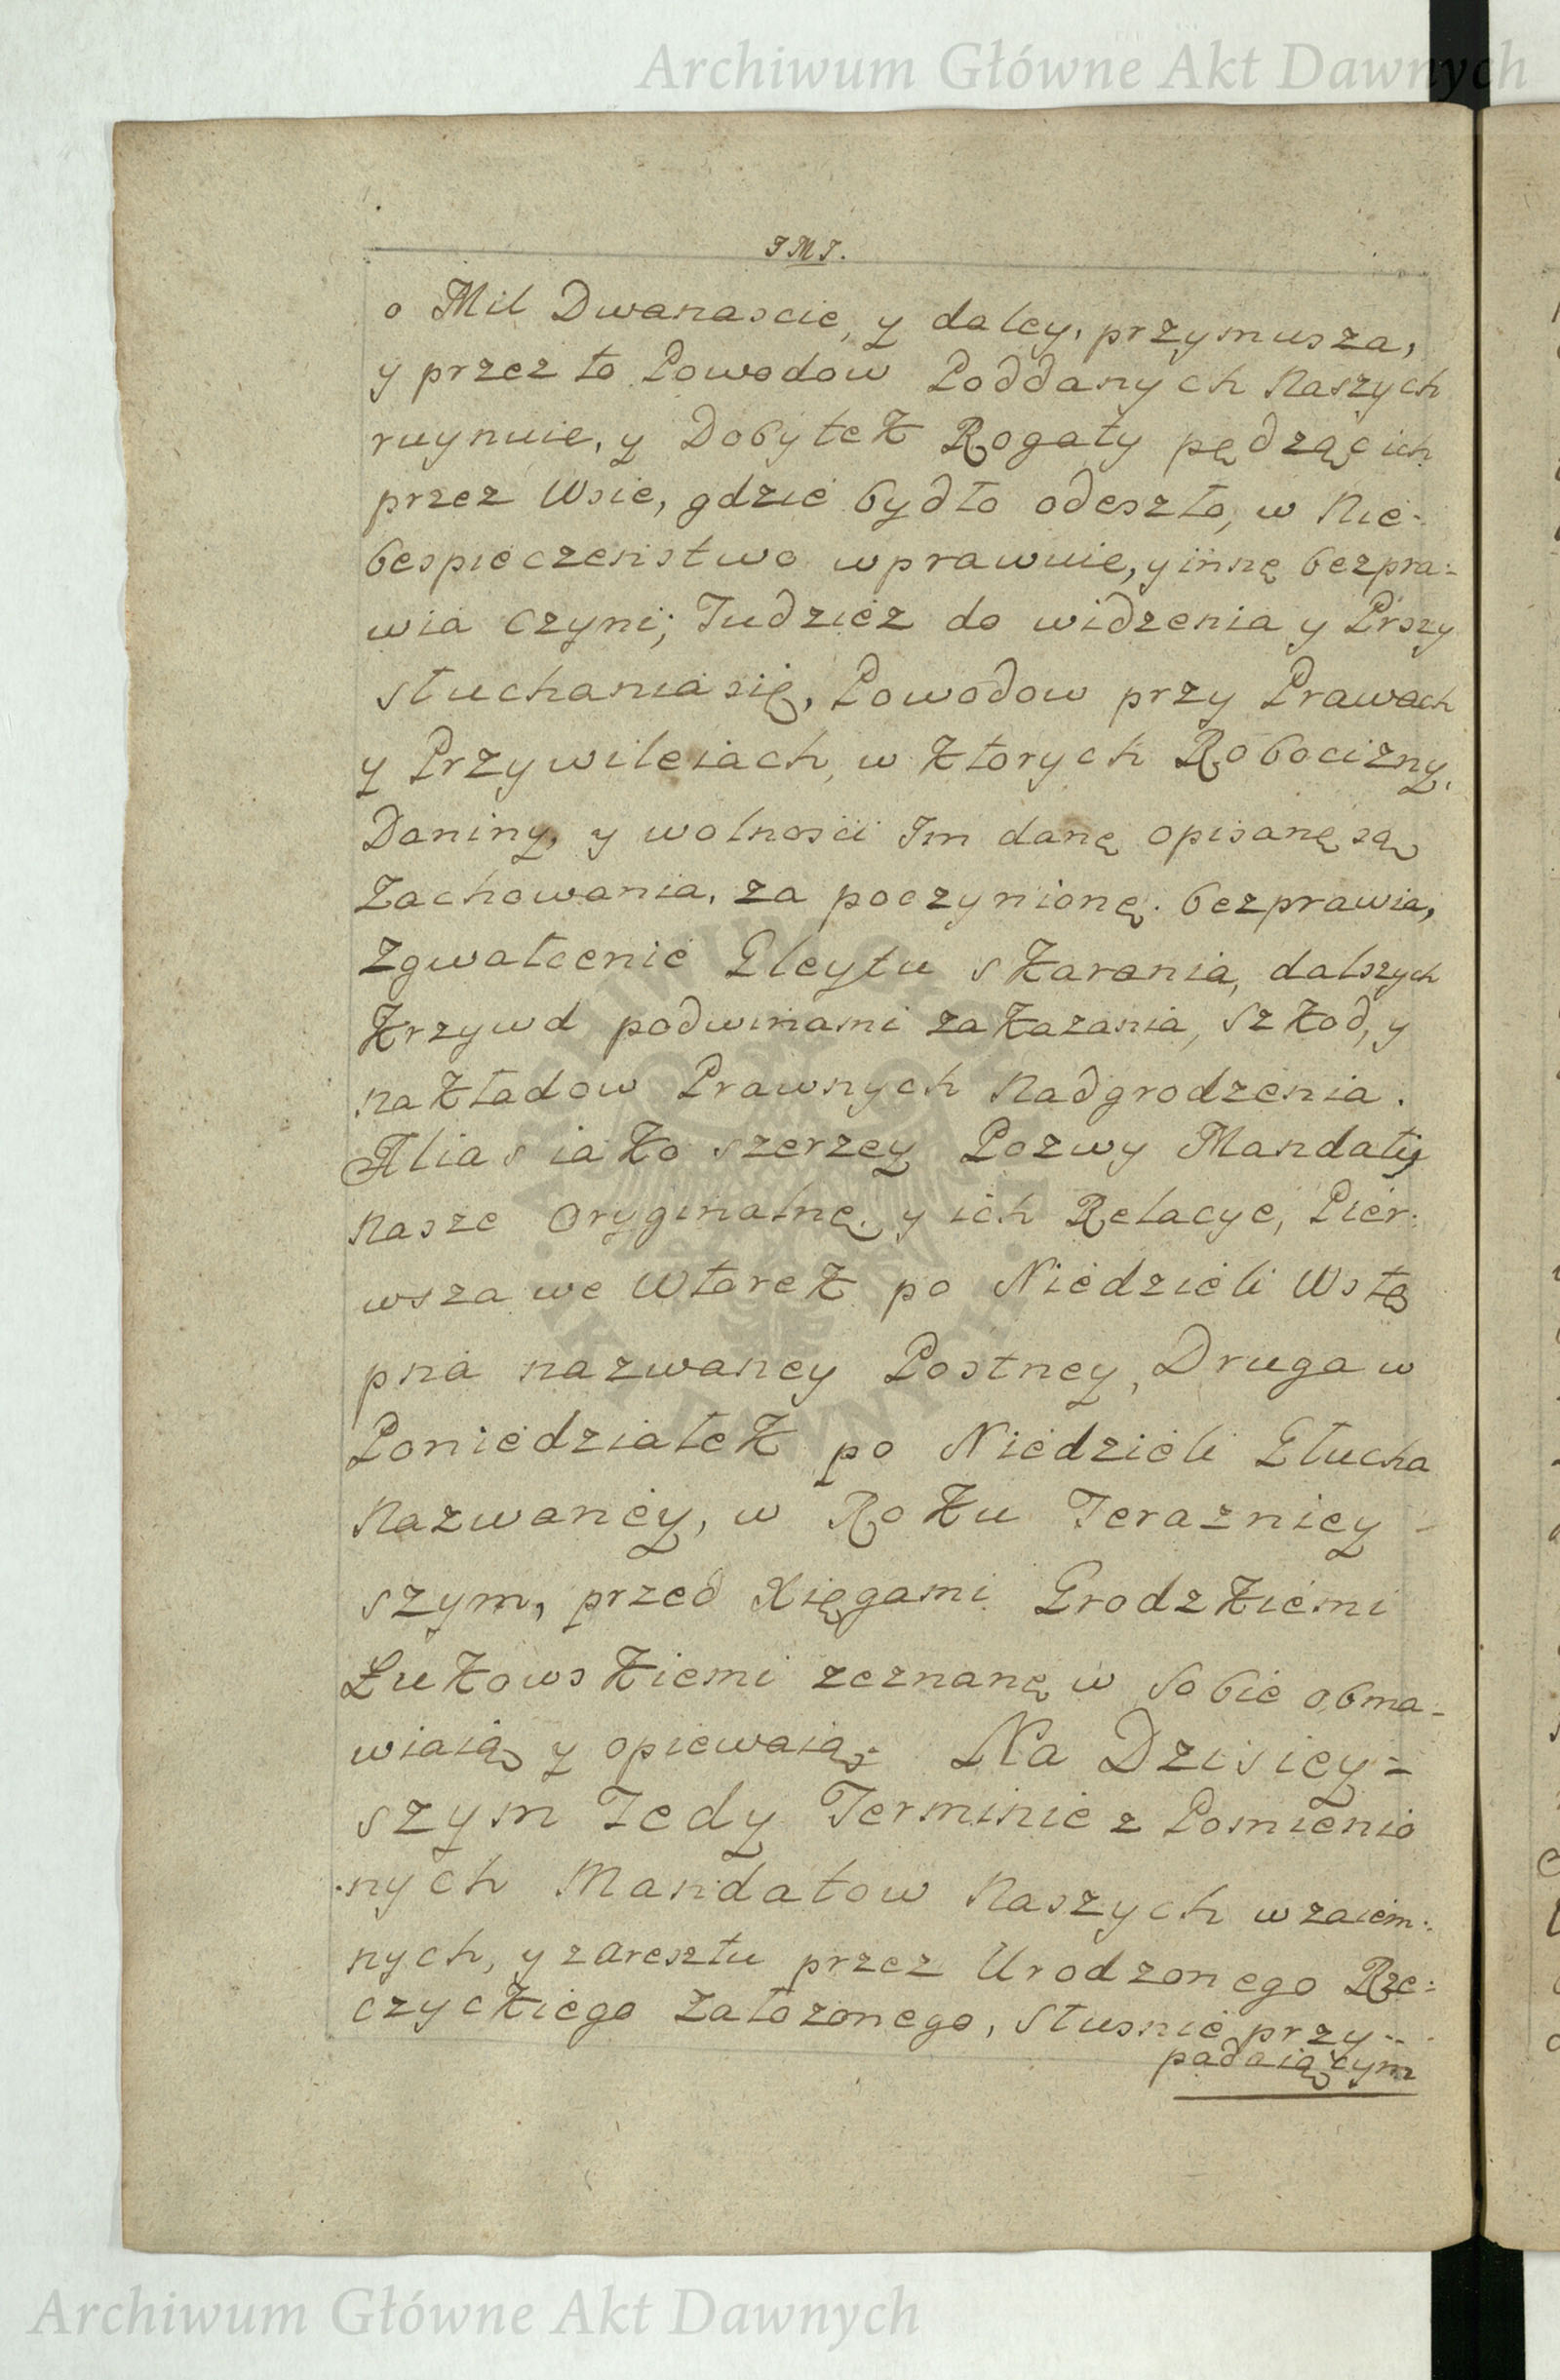 Archiwum Główne Akt Dawnych
JMJ.
o Mil Dwanascie, y daley, przymusza,
y przez to Powodow Poddanych Naszych
ruynuie, y Dobytek Rogaty pędzących
przez Wsie, gdzie bydło odeszło, w Nie-
bespieczenstwo wprawuie, y innę bezpra-
wia czyni; Tudziez do widzenia y Przy
słuchania się, Powodow przy Prawach
y Przywileiach, w ktorych Robocizny,
Daniny, y wolnosci Im danę opisanę są
Zachowania, za poczynionę bezprawia,
Zgwałcenie Gleytu skarania, dalszych
krzywd podwinami zakazania, Szkod, y
nakładow Prawnych Nadgrodzenia.
Alias iako szerzey Pozwy Mandaty
Nasze Oryginalnę y ich Relacye, Pier-
wsza we Wtorek po Niedzieli Wstę
pna nazwaney Postney, Druga w
Poniedziałek po Niedzieli Głucha
Nazwaney, w Roku Terazniey-
szym, przed Xięgami Grodzkiemi
Łukowskiemi zeznanę w Sobie obma-
wiaią y opiewaią. Na Dzisiey-
szym Tedy Terminie z Pomienio
nych Mandatow Naszych wzaiem-
nych, y zaresztu przez Urodzonego Rze-
czyckiego Załozonego, Słusnie przy-
padaiącym
ARCHIWUM GŁÓWNE AKT DAWNYCH
Archiwum Główne Akt Dawnych